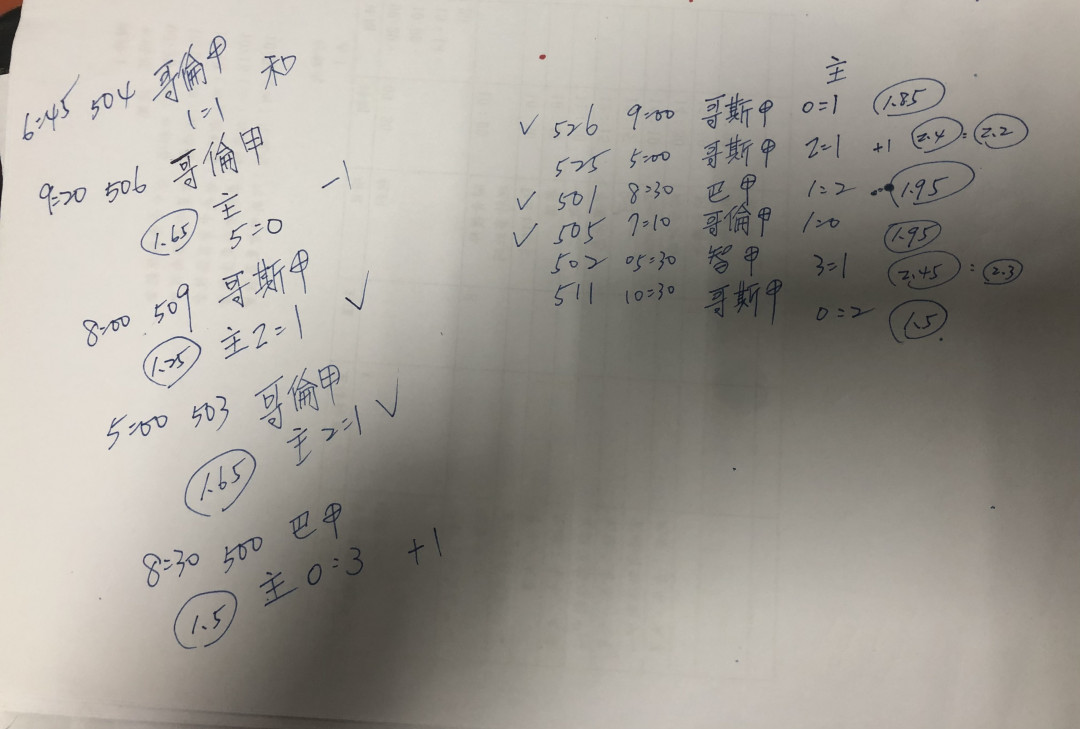 6:45 504 哥倫甲 和
1=1
9=20 506 哥倫甲
1.65 主 -1
5=0
8=00 509 哥斯甲
1.25 主2=1 ✓
5=00 503 哥倫甲
1.65 主2=1 ✓
8=30 500 巴甲
1.5 主0=3 +1
主
✓ 526 9=00 哥斯甲 0=1 1.85
525 5=00 哥斯甲 2=1 +1 2.4 = 2.2
✓ 501 8=30 巴甲 1=2 1.95
✓ 505 7=10 哥倫甲 1=0 1.95
502 05=30 智甲 3=1 2.45 = 2.3
511 10=30 哥斯甲 0=2 1.5